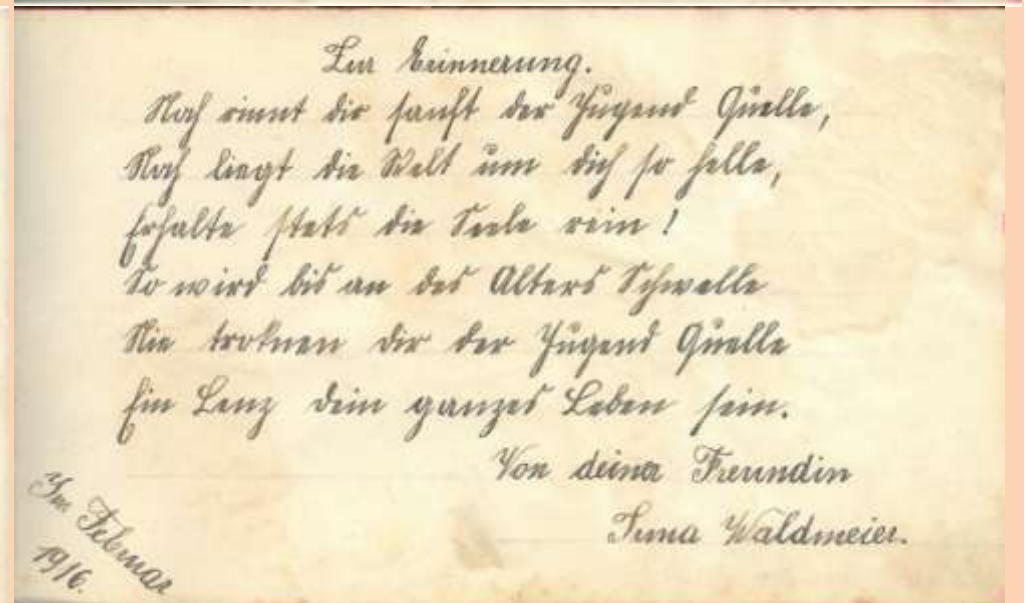 Zur Erinnerung.
Noch rinnt dir sanft der Jugend Quelle,
Noch liegt die Welt um dich so helle,
Erhalte stets die Seele rein!
So wird bis an des Alters Schwelle
Nie troknen dir der Jugend Quelle
Ein Lenz dein ganzes Leben sein.
Von deiner Freundin
Waldmeier.
Im Februar
1916.